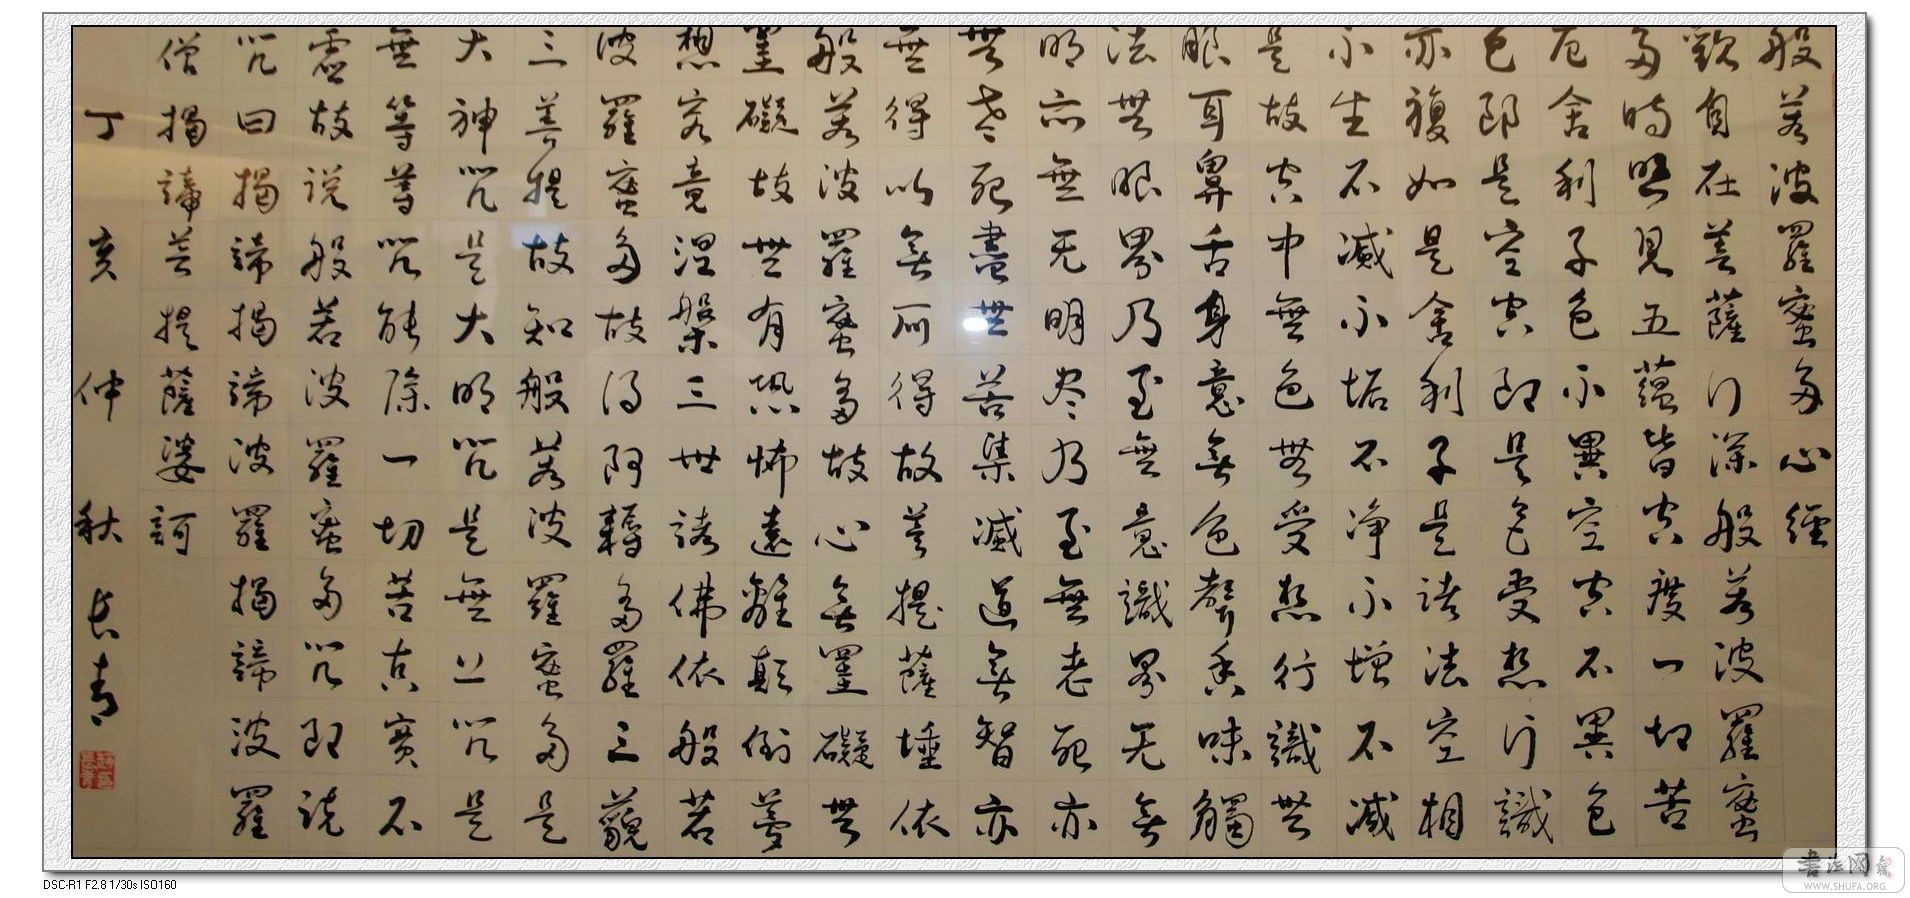 般若波羅蜜多心經
觀自在菩薩行深般若波羅蜜
多時照見五蘊皆空度一切苦
厄舍利子色不異空空不異色
色即是空空即是色受想行識
亦復如是舍利子是諸法空相
不生不滅不垢不净不增不减
是故空中無色無受想行識無
眼耳鼻舌身意無色聲香味觸
法無眼界乃至無意識界无無
明亦無无明尽乃至無老死亦
無老死盡無苦集滅道無智亦
無得以無所得故菩提薩埵依
般若波羅蜜多故心無罣礙無
罣礙故無有恐怖遠離顛倒夢
想究竟涅槃三世諸佛依般若
波羅蜜多故得阿耨多羅三藐
三菩提故知般若波羅蜜多是
大神咒是大明咒是無上咒是
無等等咒能除一切苦真實不
虛故説般若波羅蜜多咒即説
咒曰揭諦揭諦波羅揭諦波羅
僧揭諦菩提薩婆訶
丁亥仲秋长青
DSC-R1 F2.8 1/30s ISO160
書法网
WWW.SHUFA.ORG